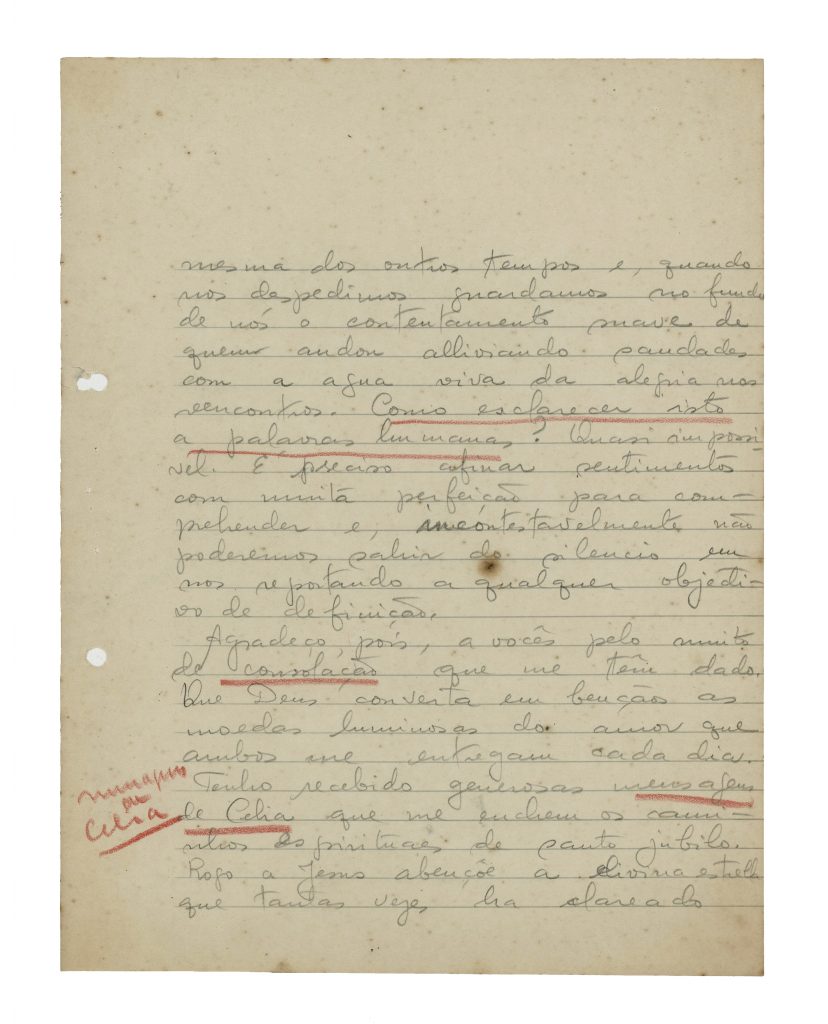 mesma dos outros tempos e, quando
nos despedimos guardamos no fundo
de nós o contentamento suave de
quem andou alliviando saudades
com a agua viva da alegria nos
reencontros. Como esclarecer isto
a palavras humanas? Quasi impossi-
vel. É preciso afinar sentimentos
com muita perfeição para com-
prehender e, incontestavelmente não
poderemos sahir do silencio em
nos reportando a qualquer objecti-
vo de definição.
Agradeço, pois, a vocês pelo muito
de consolação que me têm dado.
Que Deus converta em bençãos as
moedas luminosas do amor que
ambos me entregam cada dia.
Tenho recebido generosas mensagens
de Celia que me enchem os cami-
nhos espirituaes de santo júbilo.
Rogo a Jesus abençõe a divina estrella
que tantas vezes ha clareado
de
Celia